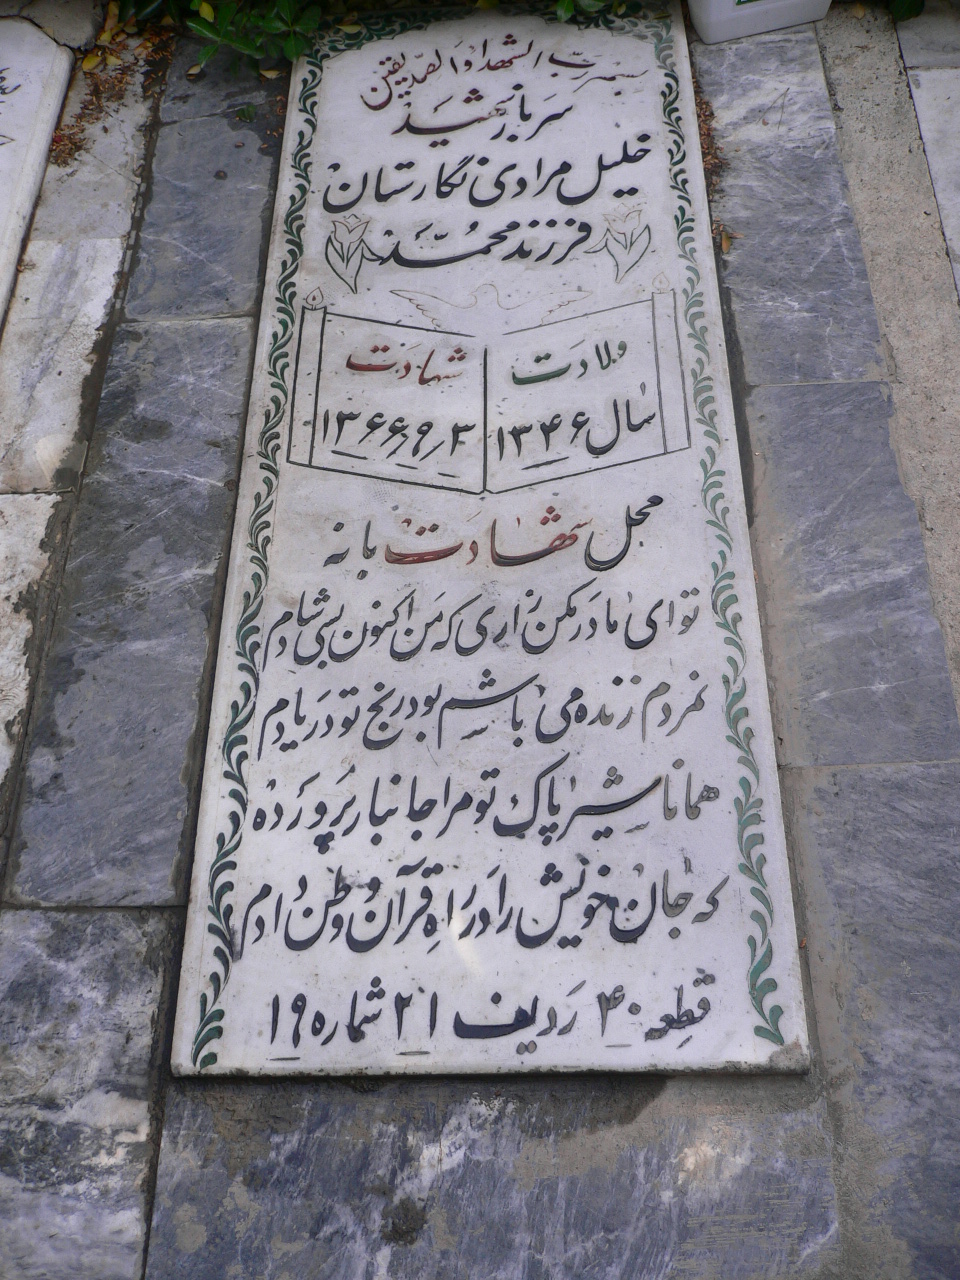 بسم رب الشهداء والصدیقین
سرباز شهید
خلیل مرادی نگارستان
فرزند محمد
ولادت
سال ۱۳۴۶
شهادت
۱۳۶۶٫۹٫۳
محل شهادت بانه
تو ای مادر مکن زاری که من اکنون بسی شادم
نمردم زنده می باشم بود رنج تو در یادم
همانا شیر پاک تو مرا جانباز پرورده
که جان خویش را در راه قرآن و وطن دادم
قطعه ۴۰ ردیف ۲۱ شماره ۱۹